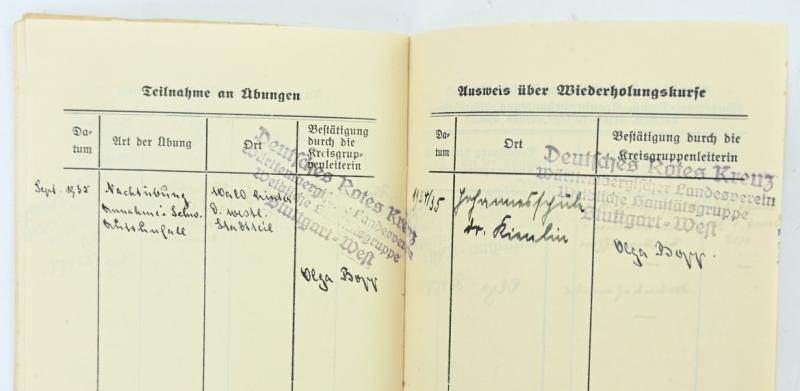 Teilnahme an Übungen
Da-
tum
Art der Übung
Ort
Bestätigung
durch die
Kreisgrup-
penleiterin
Sept. 1935
Nachtübung
Annahme: Schw.
Autounfall
Wald hinter
d. westl.
Stadtteil
Deutsches Rotes Kreuz
Württembergischer Landesverein
Weibliche Sanitätsgruppe
Stuttgart-West
Olga Bopp
Ausweis über Wiederholungskurse
Da-
tum
Ort
Bestätigung durch die
Kreisgruppenleiterin
1934/35
Johannesschule
Dr. Kienlin
Deutsches Rotes Kreuz
Württembergischer Landesverein
Weibliche Sanitätsgruppe
Stuttgart-West
Olga Bopp.